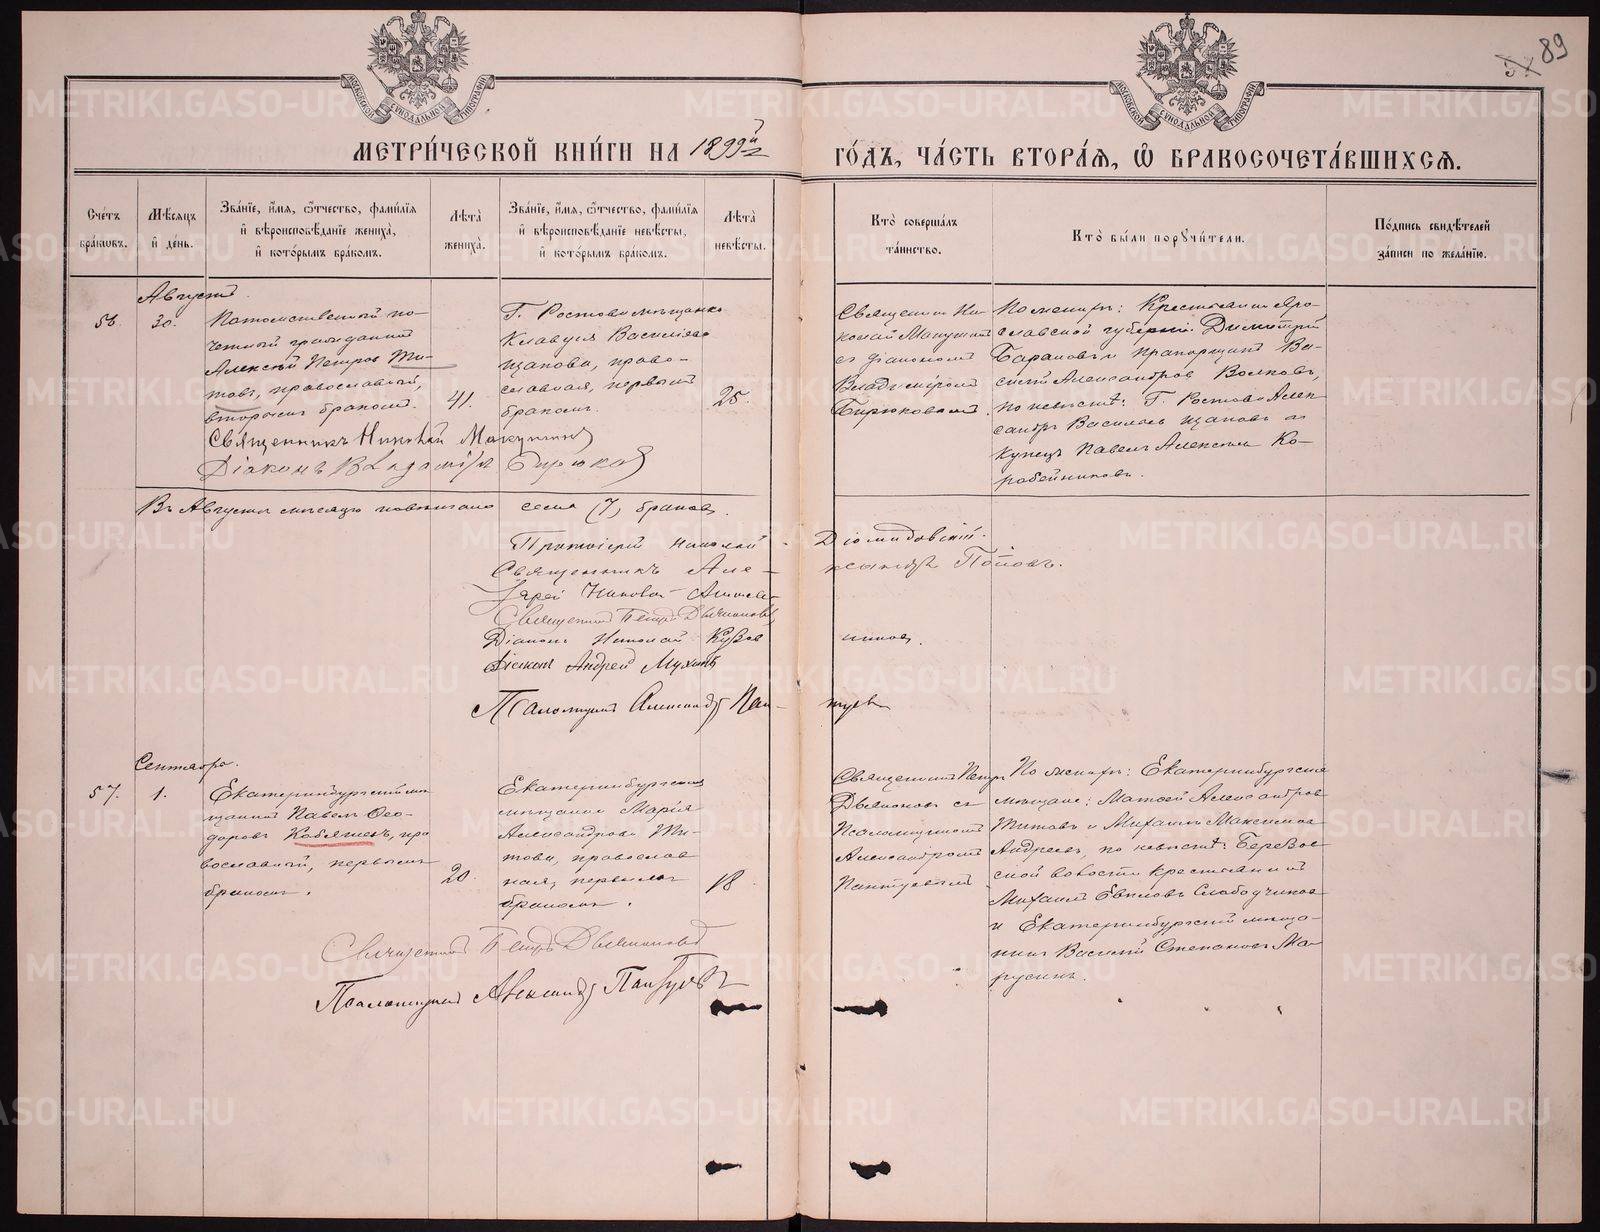 89
МОСКОВСКОЙ СѴНОДАЛЬНОЙ ТИПОГРАФІИ
МОСКОВСКОЙ СѴНОДАЛЬНОЙ ТИПОГРАФІИ
МЕТРИ́ЧЕСКОЙ КНИ́ГИ НА 1899й
ГО́ДЪ, ЧА́СТЬ ВТОРА́Я, Ѡ БРАКОСОЧЕТА́ВШИХСЯ.
Сче́тъ бра́кωвъ.
Мѣ́сяцъ и҆ де́нь.
Зва́нїе, и҆́мя, ѻ҆́тчество, фами́лїя и҆ вѣроисповѣ́данїе жениха̀, и҆ кото́рымъ бра́комъ.
Лѣта̀ жениха̀.
Зва́нїе, и҆́мя, ѻ҆́тчество, фами́лїя и҆ вѣроисповѣ́данїе невѣ́сты, и҆ кото́рымъ бра́комъ.
Лѣта̀ невѣ́сты.
Кто̀ соверша́лъ та́инство.
Кто̀ бы́ли порꙋчи́тели.
По́дпись свидѣ́телей за́писи по жела́нїю.
Августъ.
56.
30.
Потомственный по-
четный гражданинъ
Алексѣй Петровъ Ти-
товъ, православный,
вторымъ бракомъ.
41.
Г. Ростова мѣщанка
Клавдія Васильева
Щапова, право-
славная, первымъ
бракомъ.
25.
Священникъ Ни-
колай Макушинъ
съ діакономъ
Владиміромъ
Бирюковымъ.
По женихѣ: Крестьянинъ Яро-
славской губерніи Димитрій
Барановъ и прапорщикъ Ва-
силій Александровъ Волковъ,
по невѣстѣ: Г. Ростова Алек-
сандръ Васильевъ Щаповъ и
купецъ Павелъ Алексѣевъ Ко-
робейниковъ.
Священникъ Николай Макушинъ
Діаконъ Владиміръ Бирюковъ
Въ Августѣ мѣсяцѣ повѣнчано семь (7) браковъ.
Протоіерей Николай Діомидовскій.
Священникъ Александръ Поповъ.
Іерей
Священникъ Петръ Дьяконовъ
Діаконъ Николай
Діаконъ Андрей Мухинъ
Псаломщикъ Александръ Пантуевъ
Сентябрь.
57.
1.
Екатеринбургскій мѣ-
щанинъ Павелъ Ѳео-
доровъ Кобяшевъ, пра
вославный, первымъ
бракомъ.
20.
Екатеринбургская
мѣщанка Марія
Александрова Ти-
това, православ
ная, первымъ
бракомъ.
18
Священникъ Петръ
Дьяконовъ съ
псаломщикомъ
Александромъ
Пантуевымъ
По женихѣ: Екатеринбургскіе
мѣщане: Матѳей Александровъ
Титовъ и Михаилъ Максимовъ
Андреевъ, по невѣстѣ: Березов-
ской волости крестьянинъ
Михаилъ Слободчиковъ
и Екатеринбургскій мѣща-
нинъ Василій Степановъ Ма-
русинъ.
Священникъ Петръ Дьяконовъ
Псаломщикъ Александръ Пантуевъ
METRIKI.GASO-URAL.RU